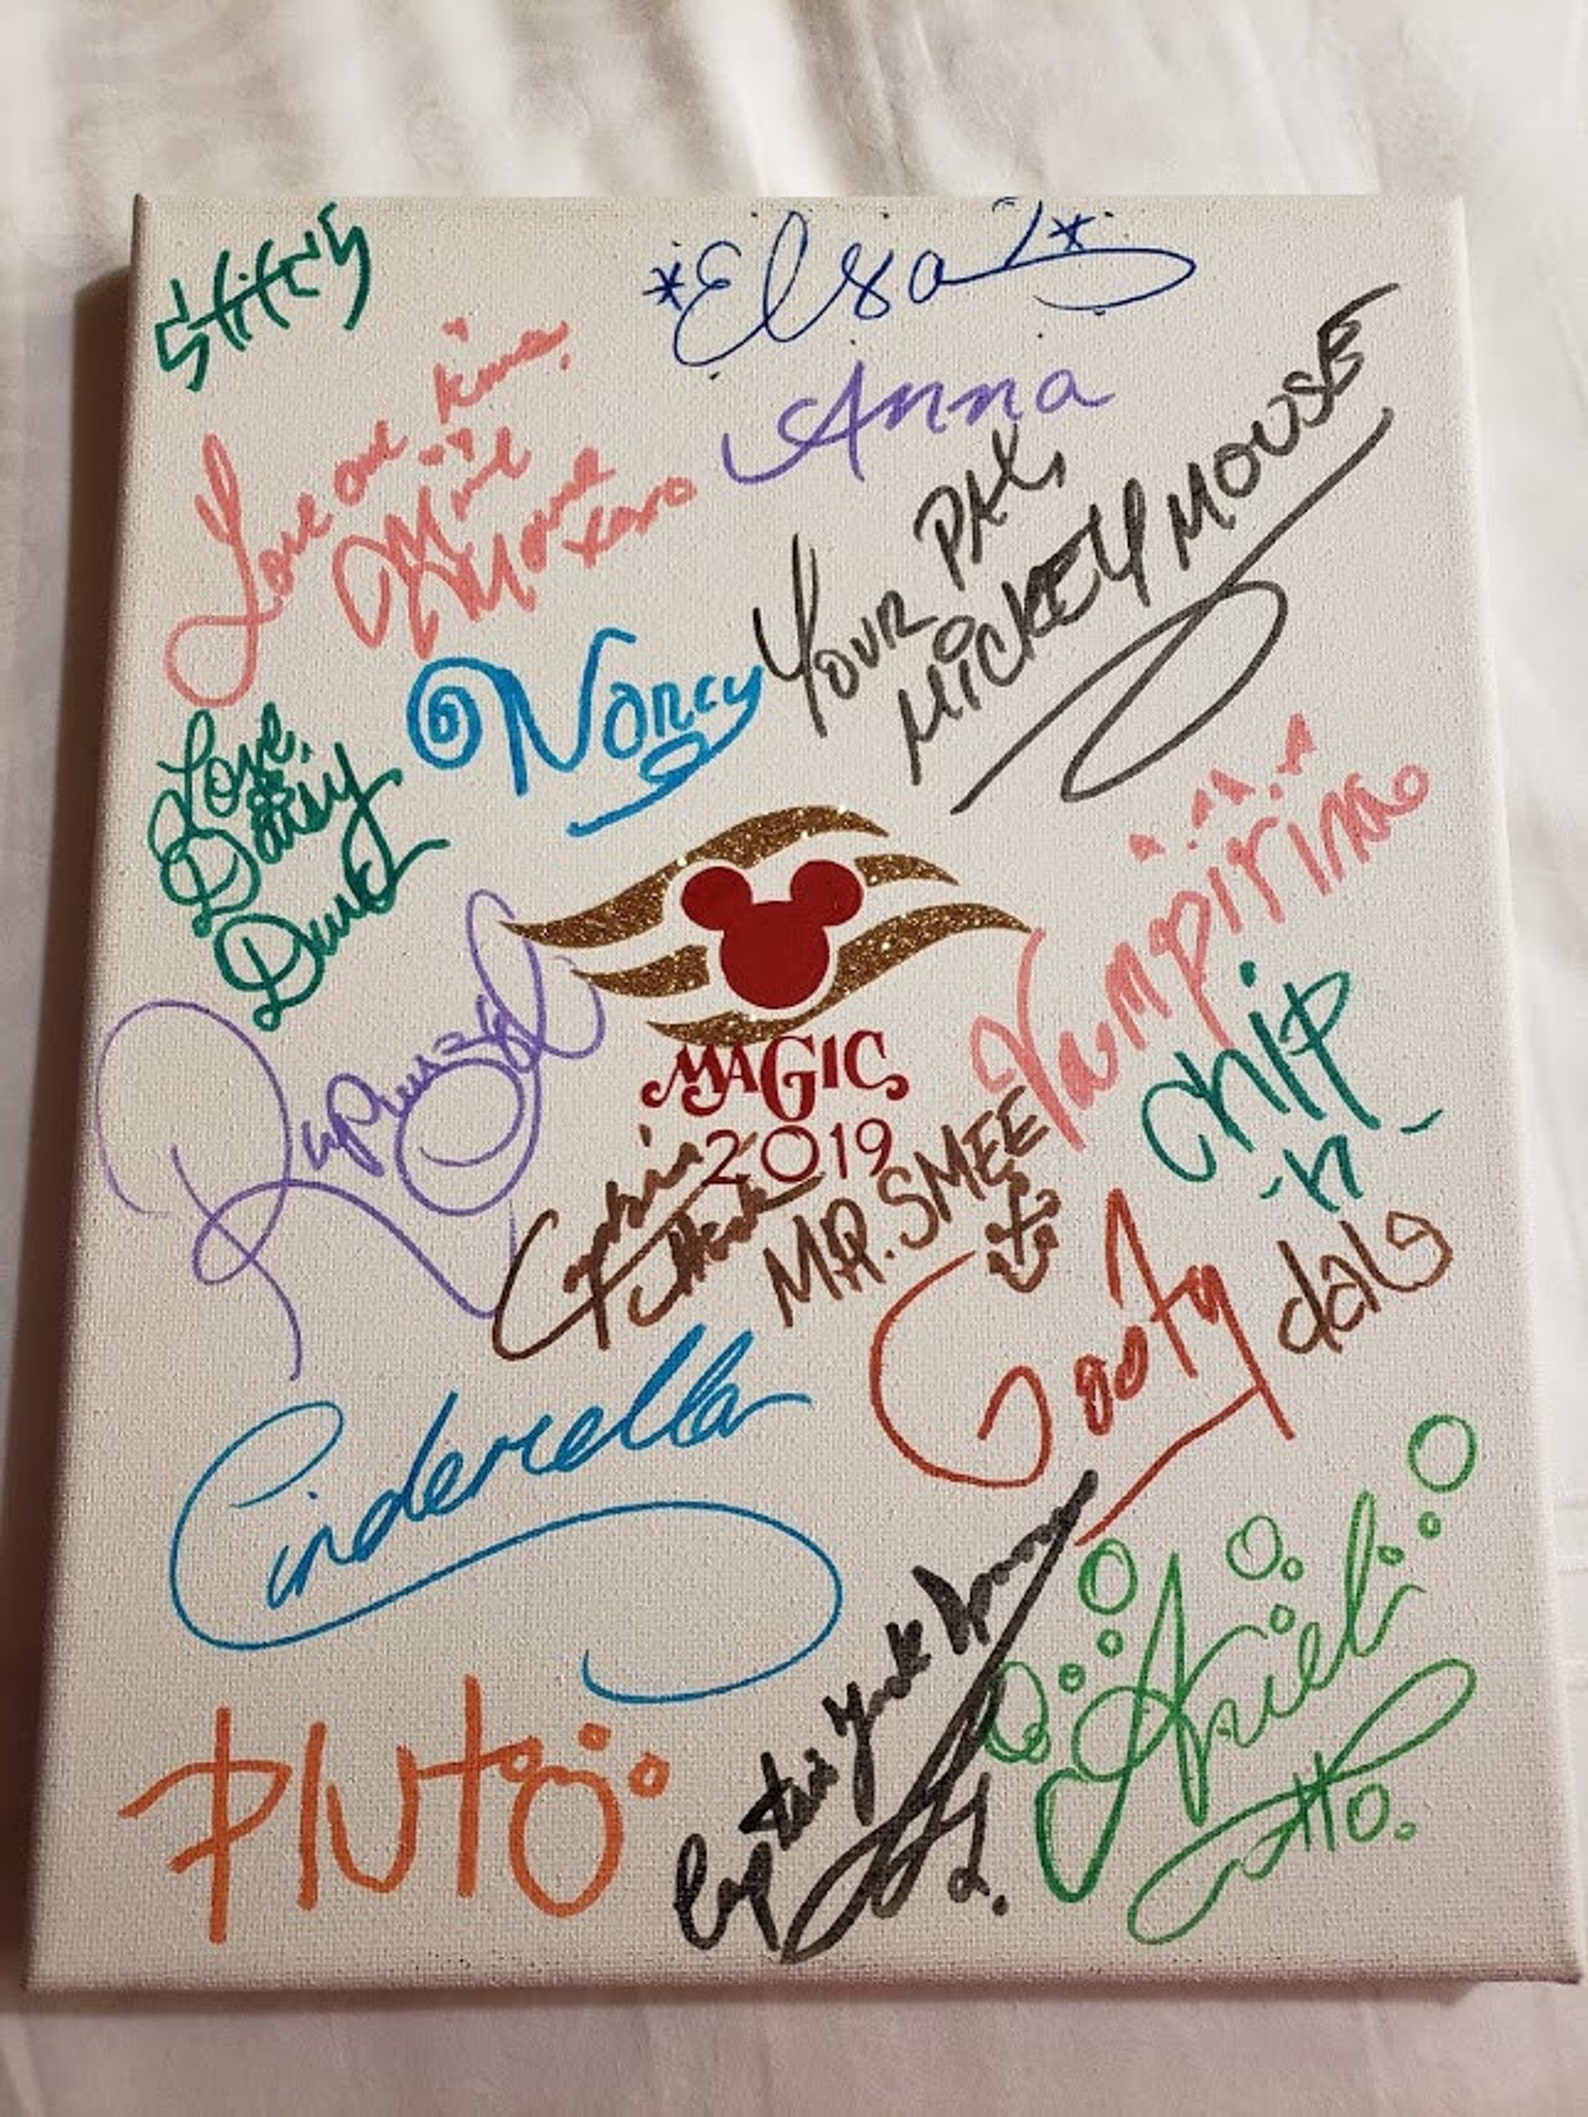 Stitch
*Elsa*
Love and kisses,
Minnie
Mouse
xoxo
Anna
YOUR PAL,
MICKEY MOUSE
Nancy
Love,
Daisy
Duck
Vampirina
Rapunzel
MAGIC
2019
chip
-n-
dale
Captain
Hook
MR. SMEE
Goofy
Cinderella
Ariel
Pluto
Captain Jack Sparrow